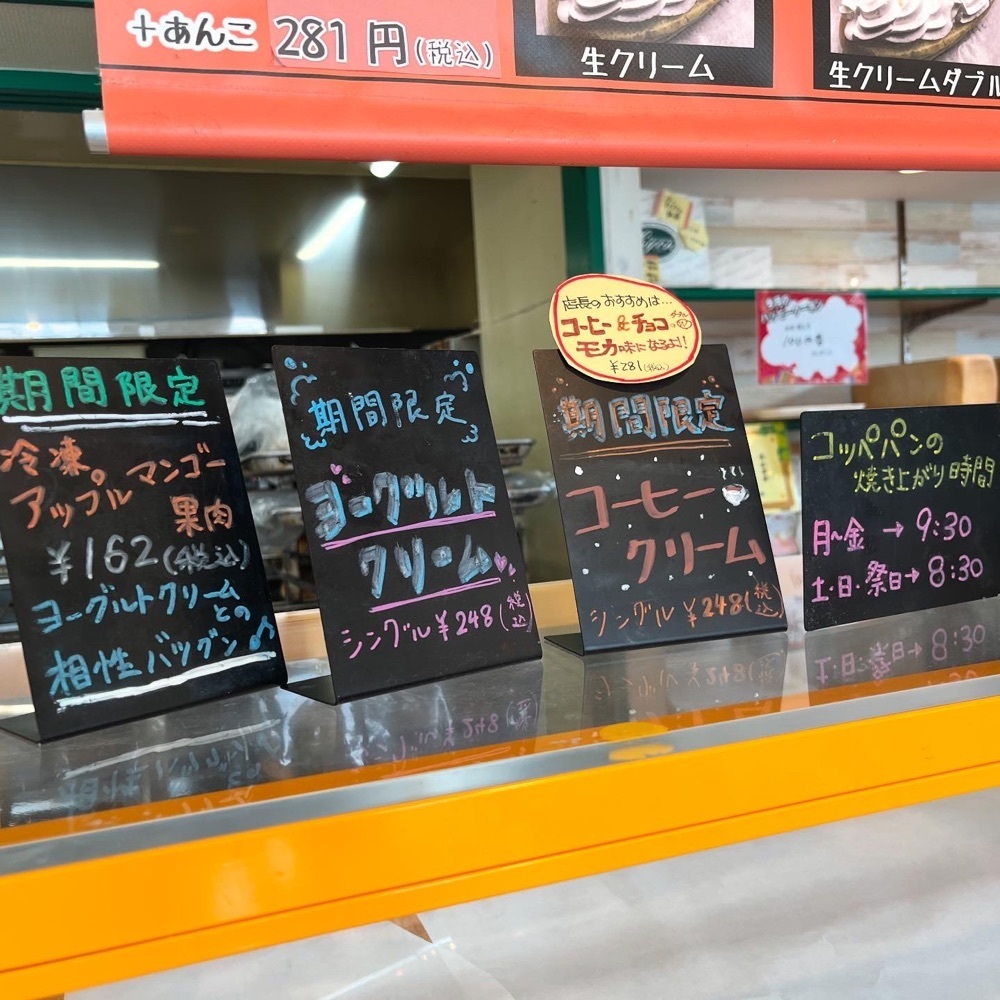 +あんこ 281円(税込)
生クリーム
生クリームダブル
期間限定
冷凍
アップルマンゴー
果肉
¥162(税込)
ヨーグルトクリーム
との
相性バツグン♪
期間限定
ヨーグルト
クリーム
シングル¥248(税込)
店長のおすすめは…
コーヒー&チョコ
モカ味になるよ!!
¥281(税込)
期間限定
コーヒー
クリーム
シングル¥248(税込)
コッペパンの
焼き上がり時間
月〜金→9:30
土・日・祭日→8:30